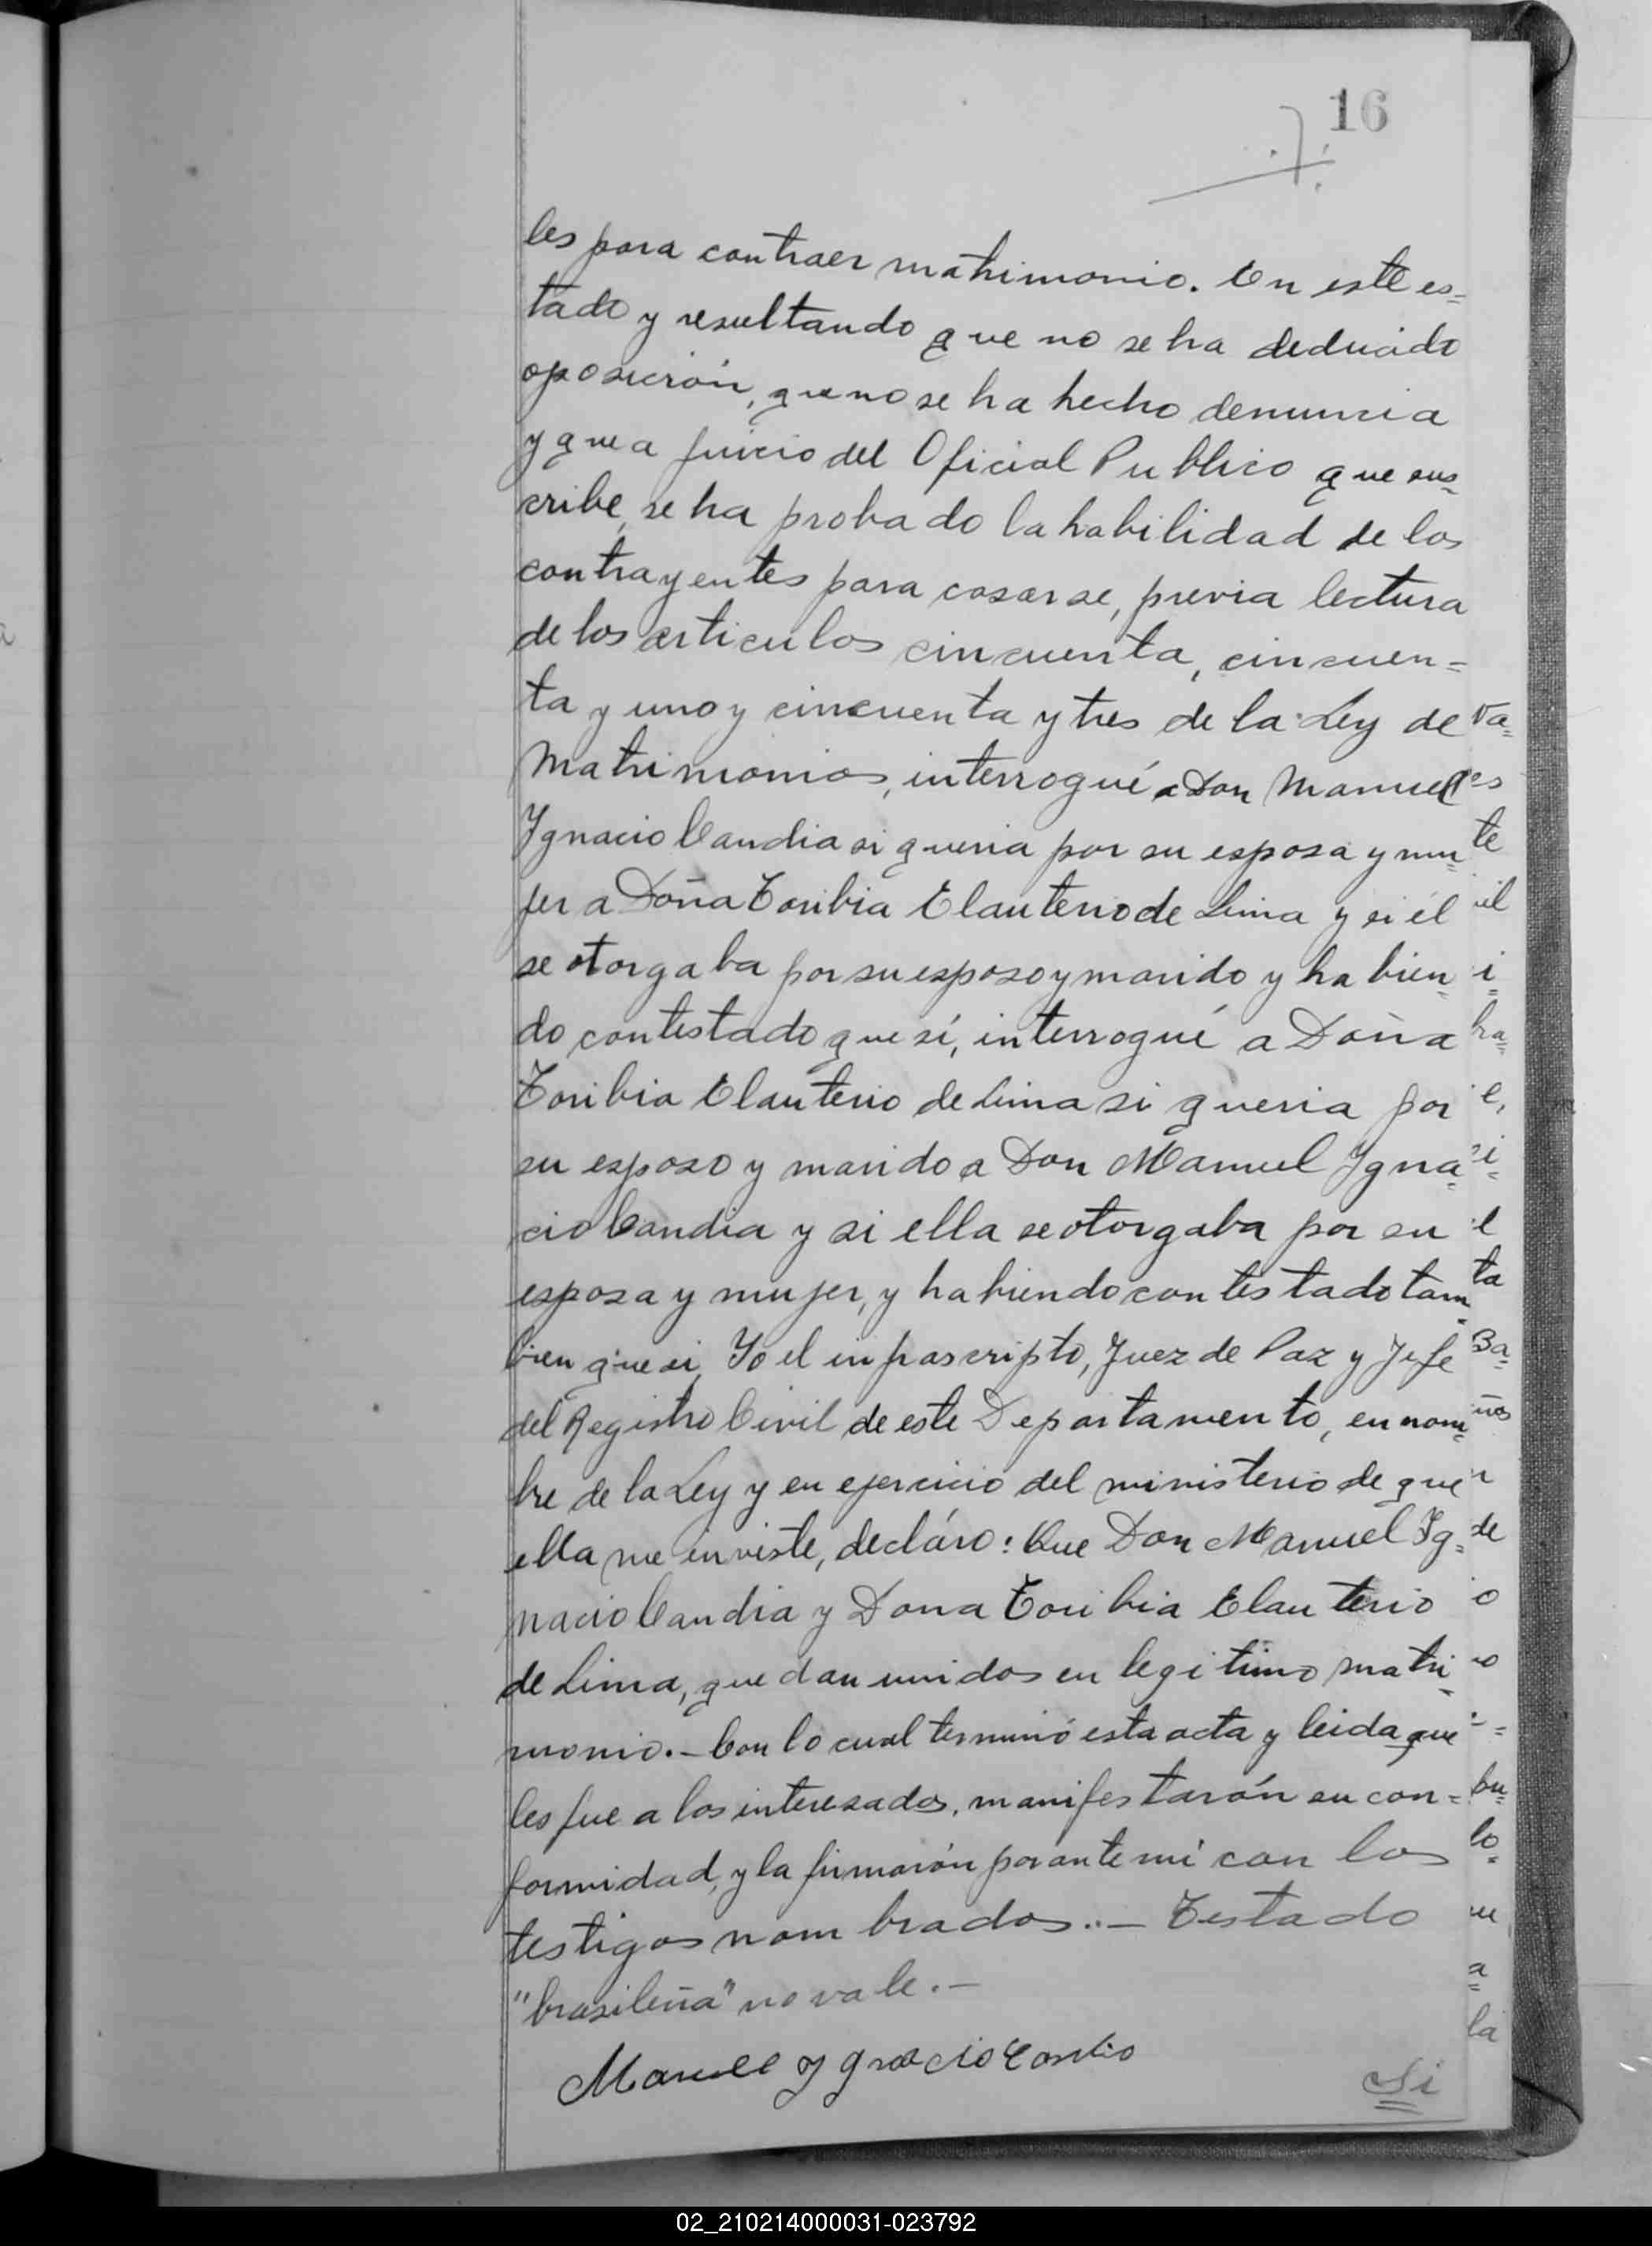 16
les para contraer matrimonio. En este es=
tado y resultando que no se ha deducido
oposición, que no se ha hecho denuncia
y que a juicio del Oficial Publico que sus=
cribe, se ha probado la habilidad de los
contrayentes para casarse, previa lectura
de los articulos cincuenta, cincuen=
ta y uno y cincuenta y tres de la Ley de
Matrimonios, interrogué a Don Manuel
Ygnacio Candia si queria por su esposa y mu=
jer a Doña Toribia Elauterio de Lima y si él
se otorgaba por su esposo y marido y habien=
do contestado que sí, interrogué a Doña
Toribia Elauterio de Lima si queria por
su esposo y marido a Don Manuel Ygna=
cio Candia y si ella se otorgaba por su
esposa y mujer, y habiendo contestado tam=
bien que si, Yo el infrascripto, Juez de Paz y Jefe
del Registro Civil de este Departamento, en nom=
bre de la Ley y en ejercicio del ministerio de que
ella me inviste, decláro: Que Don Manuel Yg=
nacio Candia y Dona Toribia Elauterio
de Lima, quedan unidos en legitimo matri=
monio.- Con lo cual terminó esta acta y leida que
les fue a los interesados, manifestarón su con=
formidad, y la firmarón por ante mí con los
testigos nombrados..- Testado
"brasileña" no vale.-
Manuel Ygnacio Candia
Si
te
de
ta
lo
la
02_210214000031-023792